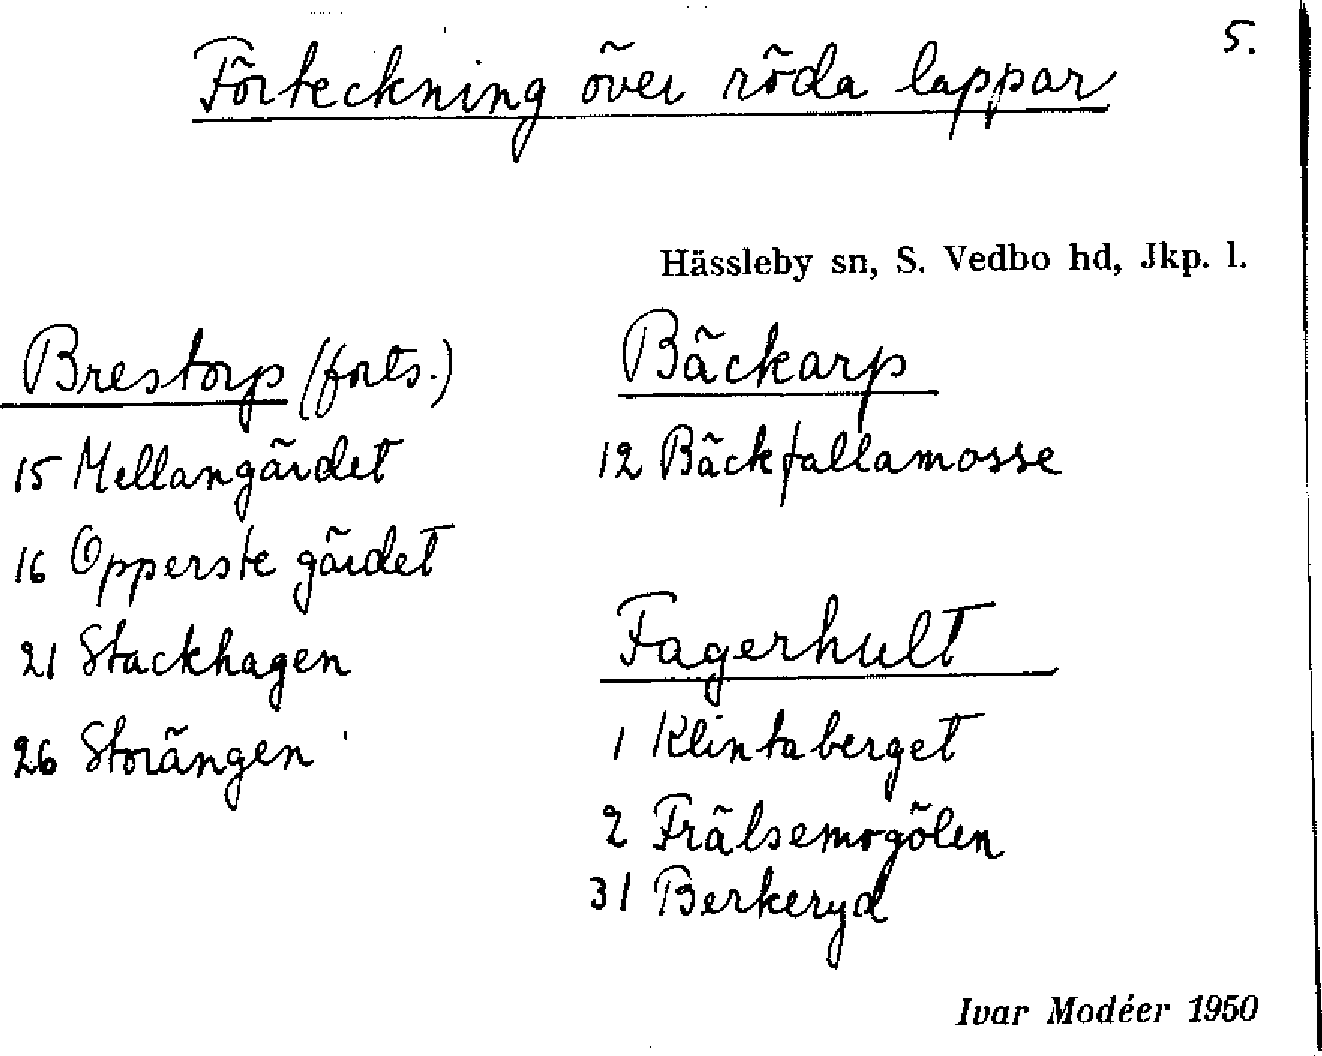 5.
Förteckning över röda lappar
Hässleby sn, S. Vedbo hd, Jkp. l.
Brestorp (forts.)
15 Mellangärdet
16 Opperste gärdet
21 Stackhagen
26 Storängen
Bäckarp
12 Bäckfallamosse
Fagerhult
1 Klintaberget
2 Frälsemogölen
31 Berkeryd
Ivar Modéer 1950